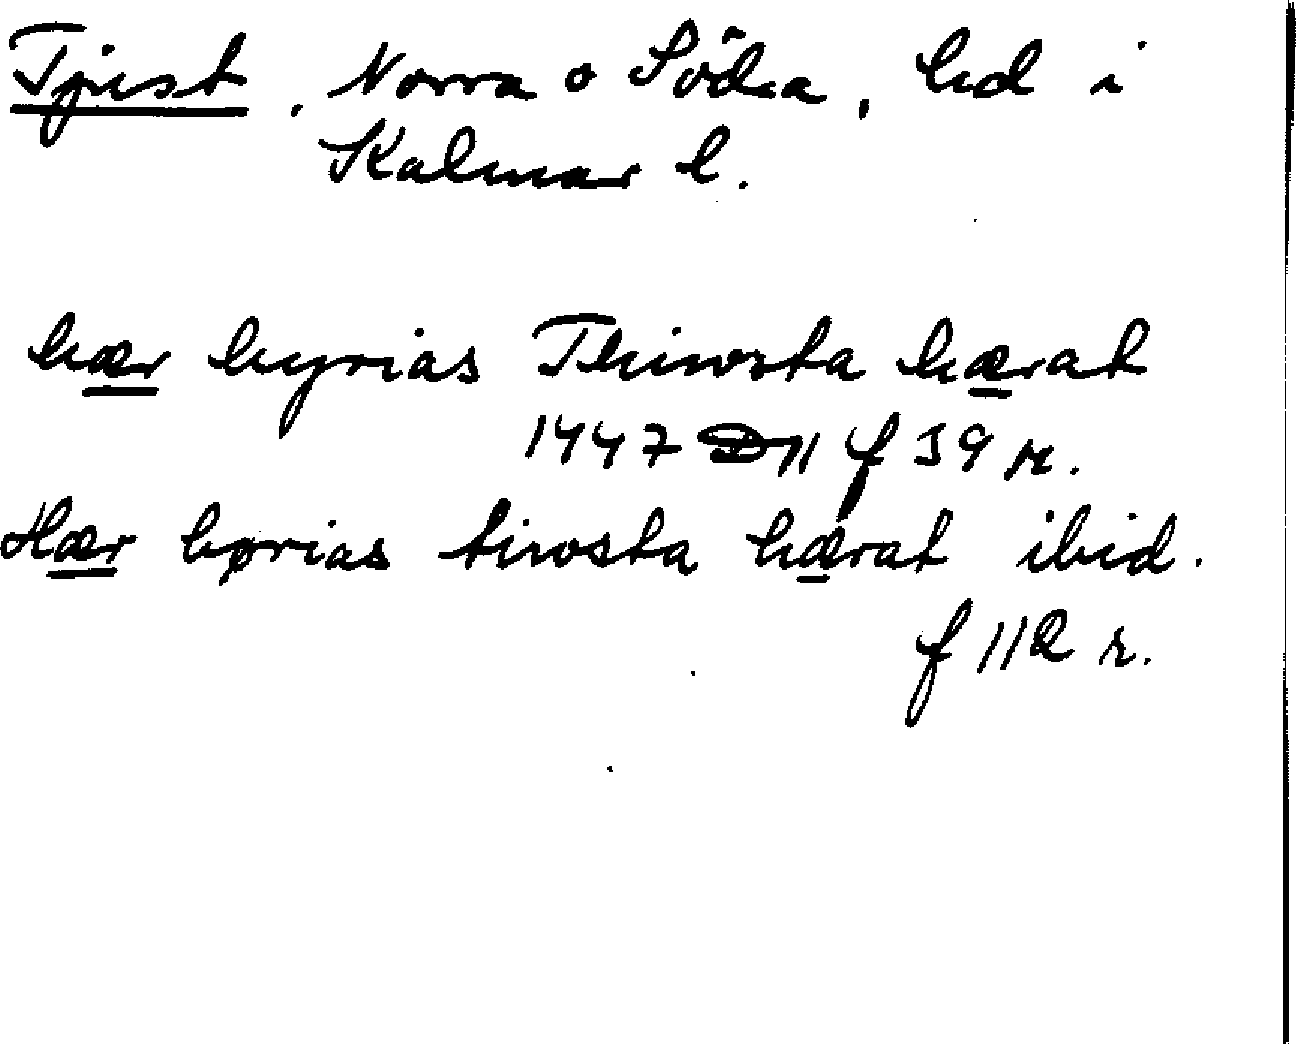 Tjust, Norra o Södra, hd i
Kalmar l.
hær hyrias Thiwsta hærat
1447 D11 f 39 r.
Hær hørias tiwsta hærat ibid.
f 112 r.